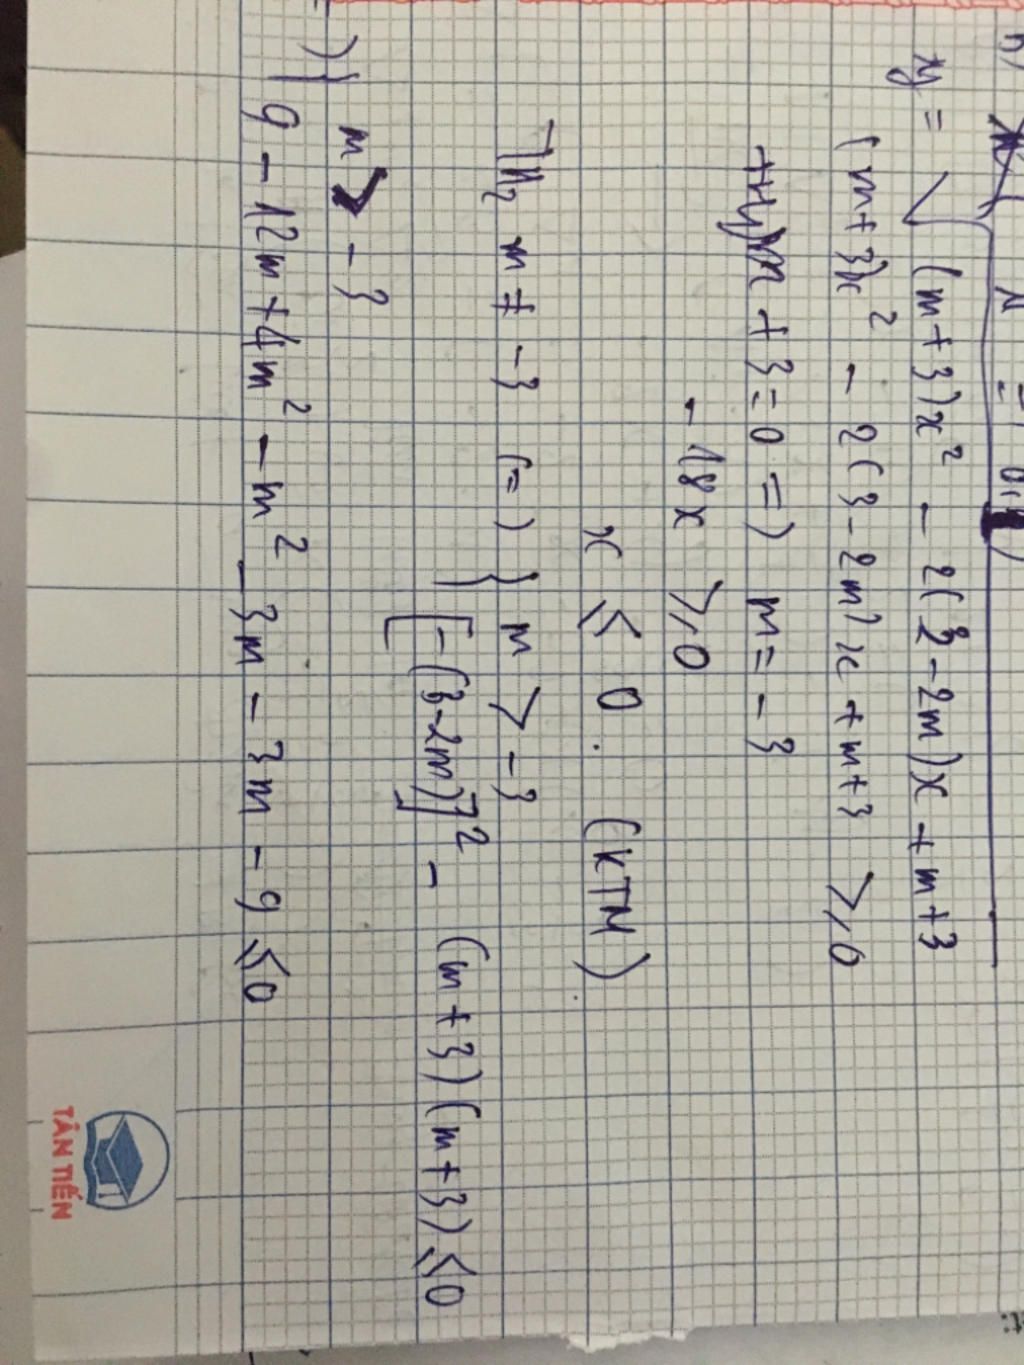 y = √(m+3)x² - 2(3-2m)x + m+3
(m+3)x² - 2(3-2m)x + m+3 ≥ 0
TH1 m + 3 = 0 => m = -3
- 18x ≥ 0
x ≤ 0. (KTM)
TH2 m ≠ -3 (=) { m > -3
[-(3-2m)]² - (m+3)(m+3) ≤ 0
) { m > -3
9 - 12m + 4m² - m² - 3m - 3m - 9 ≤ 0
TÂN TIẾN